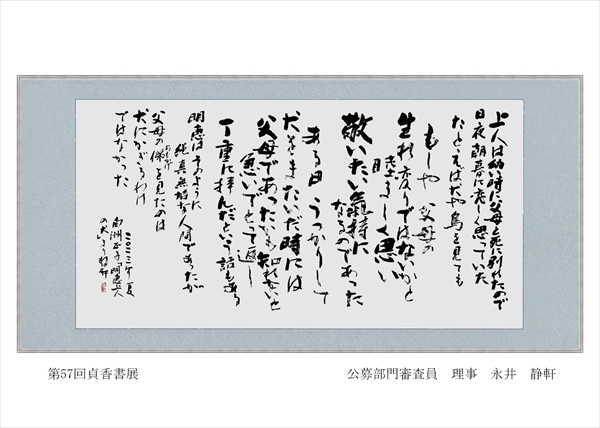 上人は幼い時に父母と死に別れたので
日夜朝暮に恋しく思っていた
たとえばだや鳥を見ても
もしや父母の
生れ変りではないかと
睦まじく思い
敬いたい氣持に
なるのであった
ある日うっかりして
犬をまたいだ時には
父母であったかも知れないと
憲いでとって返し
丁重に拝んだという話もある
明恵はそのように
純真無垢な人間であったが
父母の俤を見たのは
犬にかぎるわけ
ではなかった
二〇二三年夏
白洲正子 明恵上人
第57回貞香書展
公募部門審査員 理事 永井 静軒